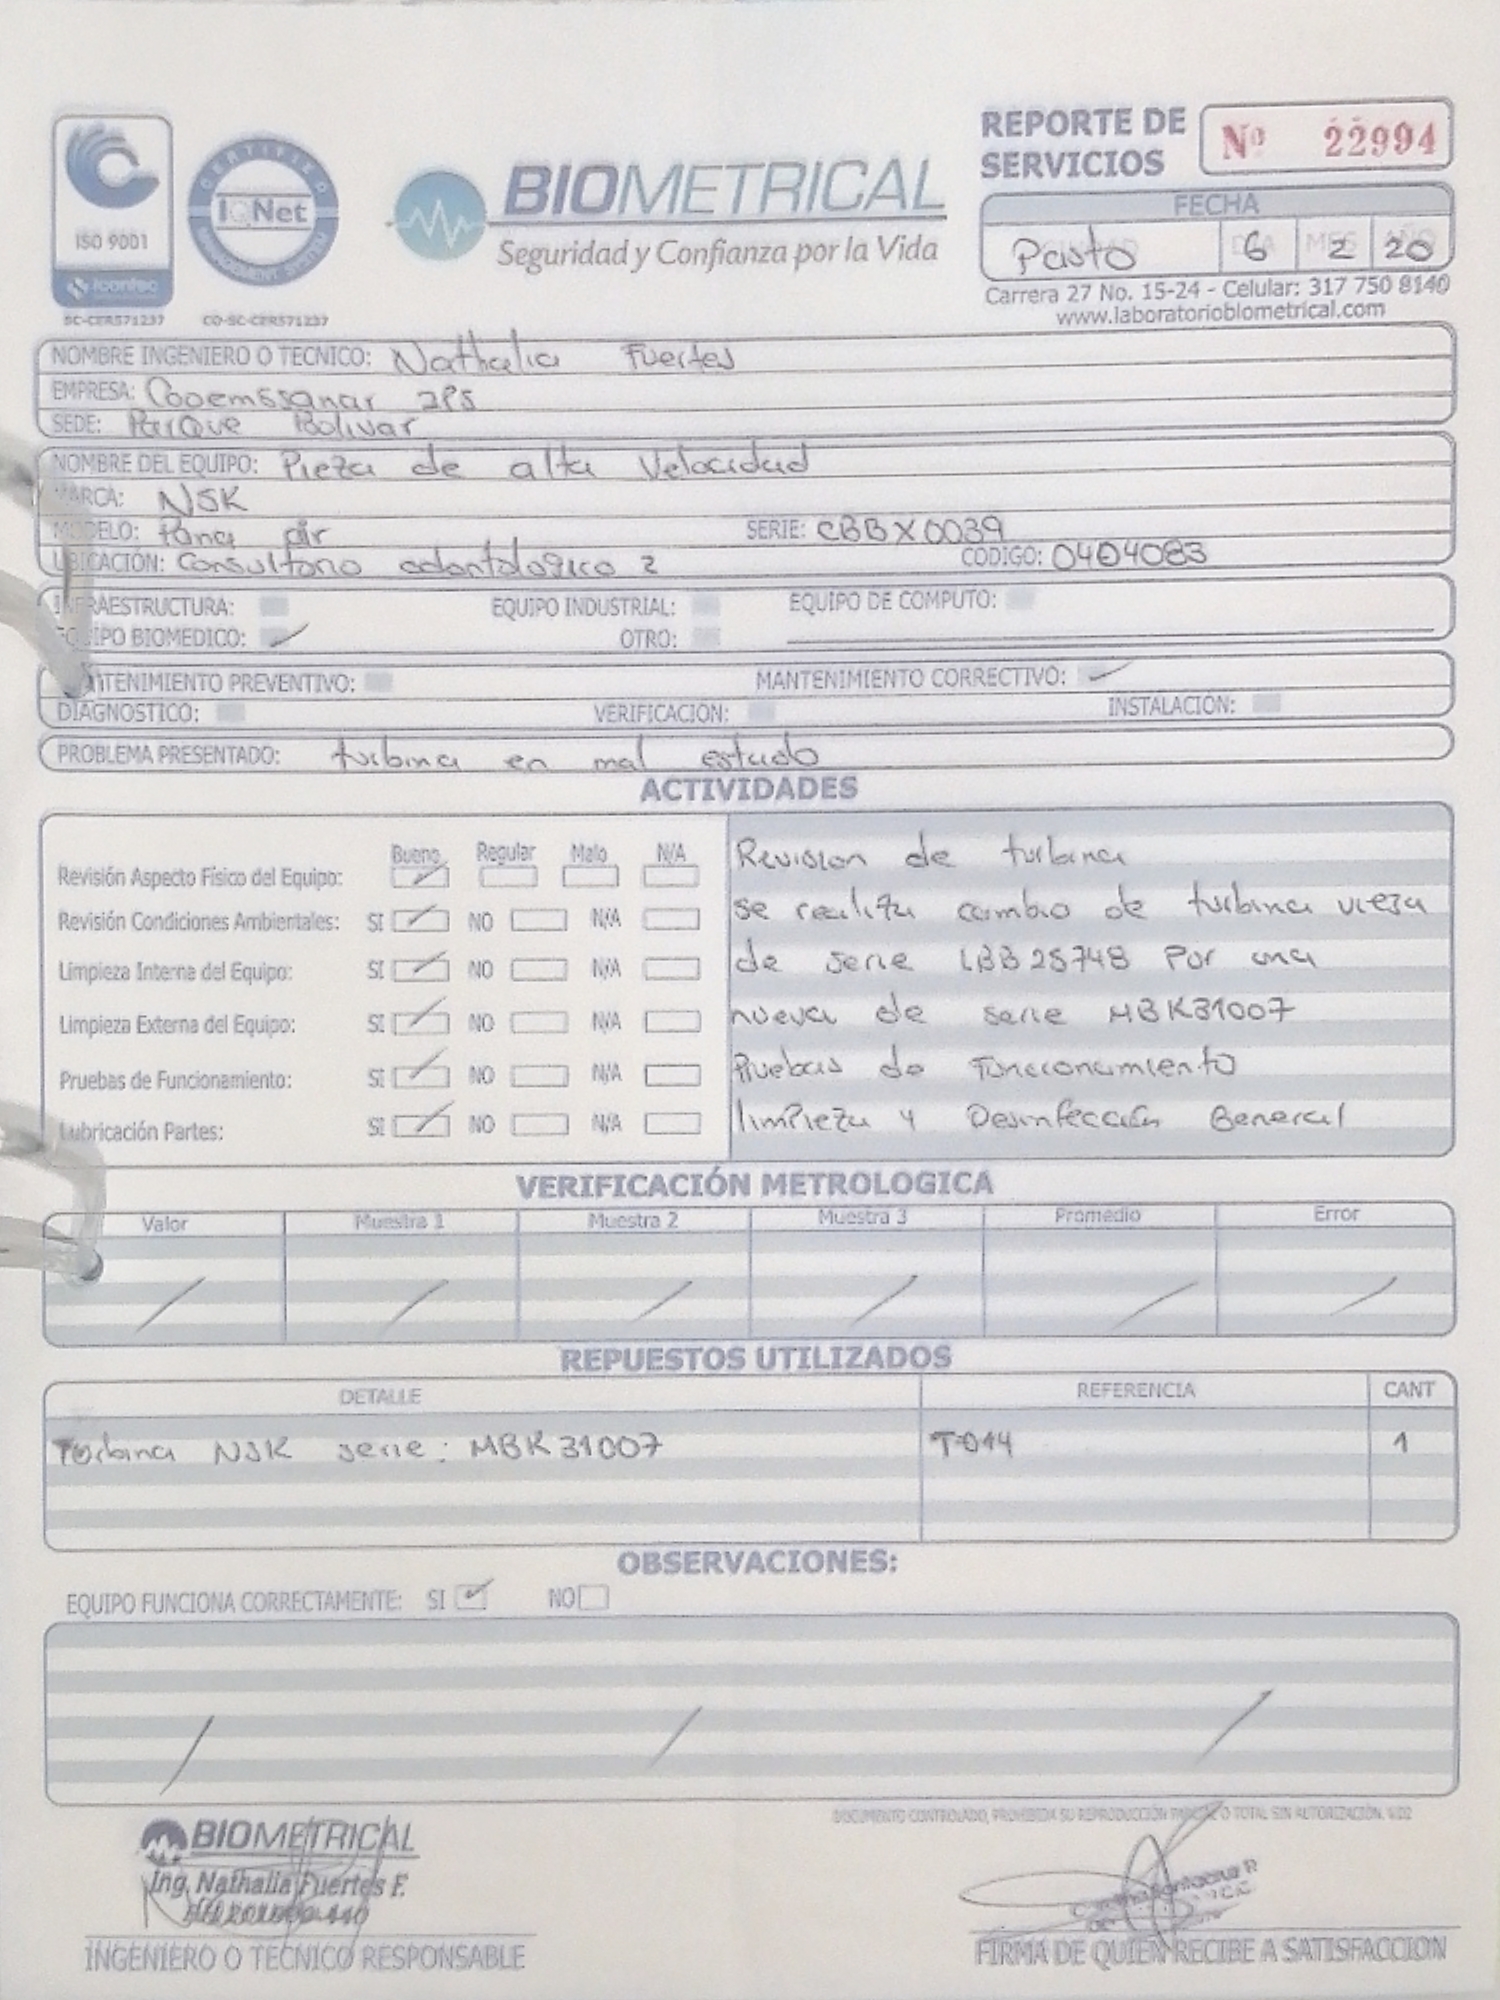 REPORTE DE SERVICIOS
Nº 22994
ISO 9001
icontec
SC-CER571237
CERTIFIED
IQNet
MANAGEMENT SYSTEM
CO-SC-CER571237
BIOMETRICAL
Seguridad y Confianza por la Vida
FECHA
Pasto 6 2 20
Carrera 27 No. 15-24 - Celular: 317 750 8140
www.laboratoriobiometrical.com
NOMBRE INGENIERO O TECNICO: Nathalia Fuertes
EMPRESA: Cooemssanar IPS
SEDE: Parque Bolivar
NOMBRE DEL EQUIPO: Pieza de alta Velocidad
MARCA: NSK
MODELO: Pana air SERIE: CBBX0039
UBICACIÓN: Consultorio odontologico 2 CODIGO: 0404083
INFRAESTRUCTURA: EQUIPO INDUSTRIAL: EQUIPO DE COMPUTO:
EQUIPO BIOMEDICO: ✓ OTRO:
MANTENIMIENTO PREVENTIVO: MANTENIMIENTO CORRECTIVO: ✓
DIAGNOSTICO: VERIFICACIÓN: INSTALACIÓN:
PROBLEMA PRESENTADO: turbina en mal estado
ACTIVIDADES
Bueno Regular Malo N/A
Revisión Aspecto Físico del Equipo:
Revisión Condiciones Ambientales: SI NO N/A
Limpieza Interna del Equipo: SI NO N/A
Limpieza Externa del Equipo: SI NO N/A
Pruebas de Funcionamiento: SI NO N/A
Lubricación Partes: SI NO N/A
Revision de turbina
se realiza cambio de turbina vieja
de serie LBB25748 Por una
nueva de serie MBK31007
Pruebas de Funcionamiento
limpieza y Desinfección General
VERIFICACIÓN METROLOGICA
Valor Muestra 1 Muestra 2 Muestra 3 Promedio Error
REPUESTOS UTILIZADOS
DETALLE REFERENCIA CANT
Turbina NSK serie: MBK31007 T-014 1
OBSERVACIONES:
EQUIPO FUNCIONA CORRECTAMENTE: SI ✓ NO
DOCUMENTO CONTROLADO, PROHIBIDA SU REPRODUCCIÓN PARCIAL O TOTAL SIN AUTORIZACIÓN. V.02
BIOMETRICAL
Ing. Nathalia Fuertes F.
INGENIERO O TECNICO RESPONSABLE
FIRMA DE QUIEN RECIBE A SATISFACCION